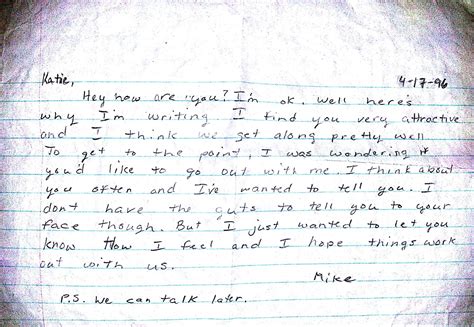 Katie, 4-17-96
Hey how are you? I'm ok. Well here's
why I'm writing I find you very attractive
and I think we get along pretty well
To get to the point, I was wondering if
you'd like to go out with me. I think about
you often and I've wanted to tell you. I
don't have the guts to tell you to your
face though. But I just wanted to let you
know How I feel and I hope things work
out with us.
Mike
P.S. We can talk later.